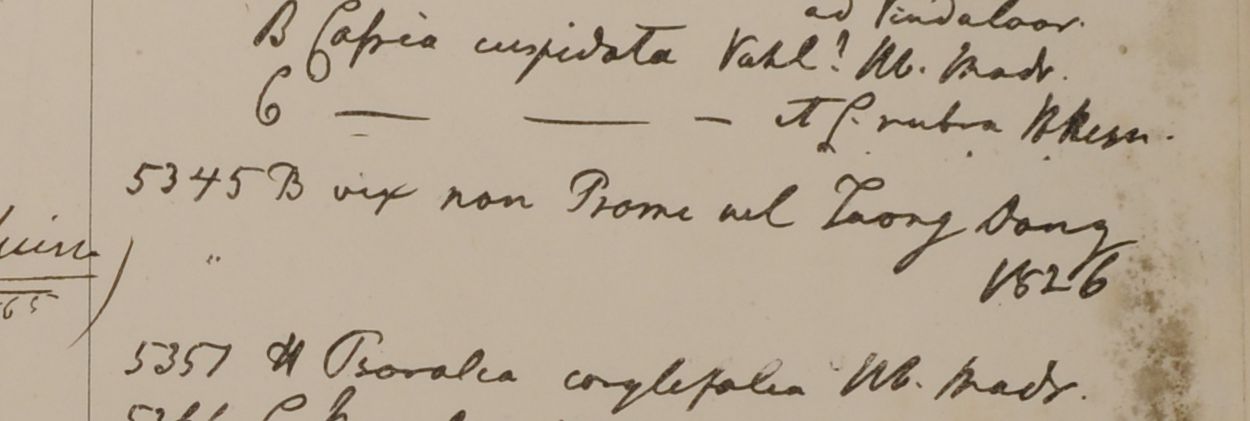 ad Pindaloor.
B Cassia cuspidata Vahl? Hb. Madr.
C — — — A C. rubra
5345 B vix non Prome vel Taong Dong
1826
5351 A Psoralea corylifolia Hb. Madr.